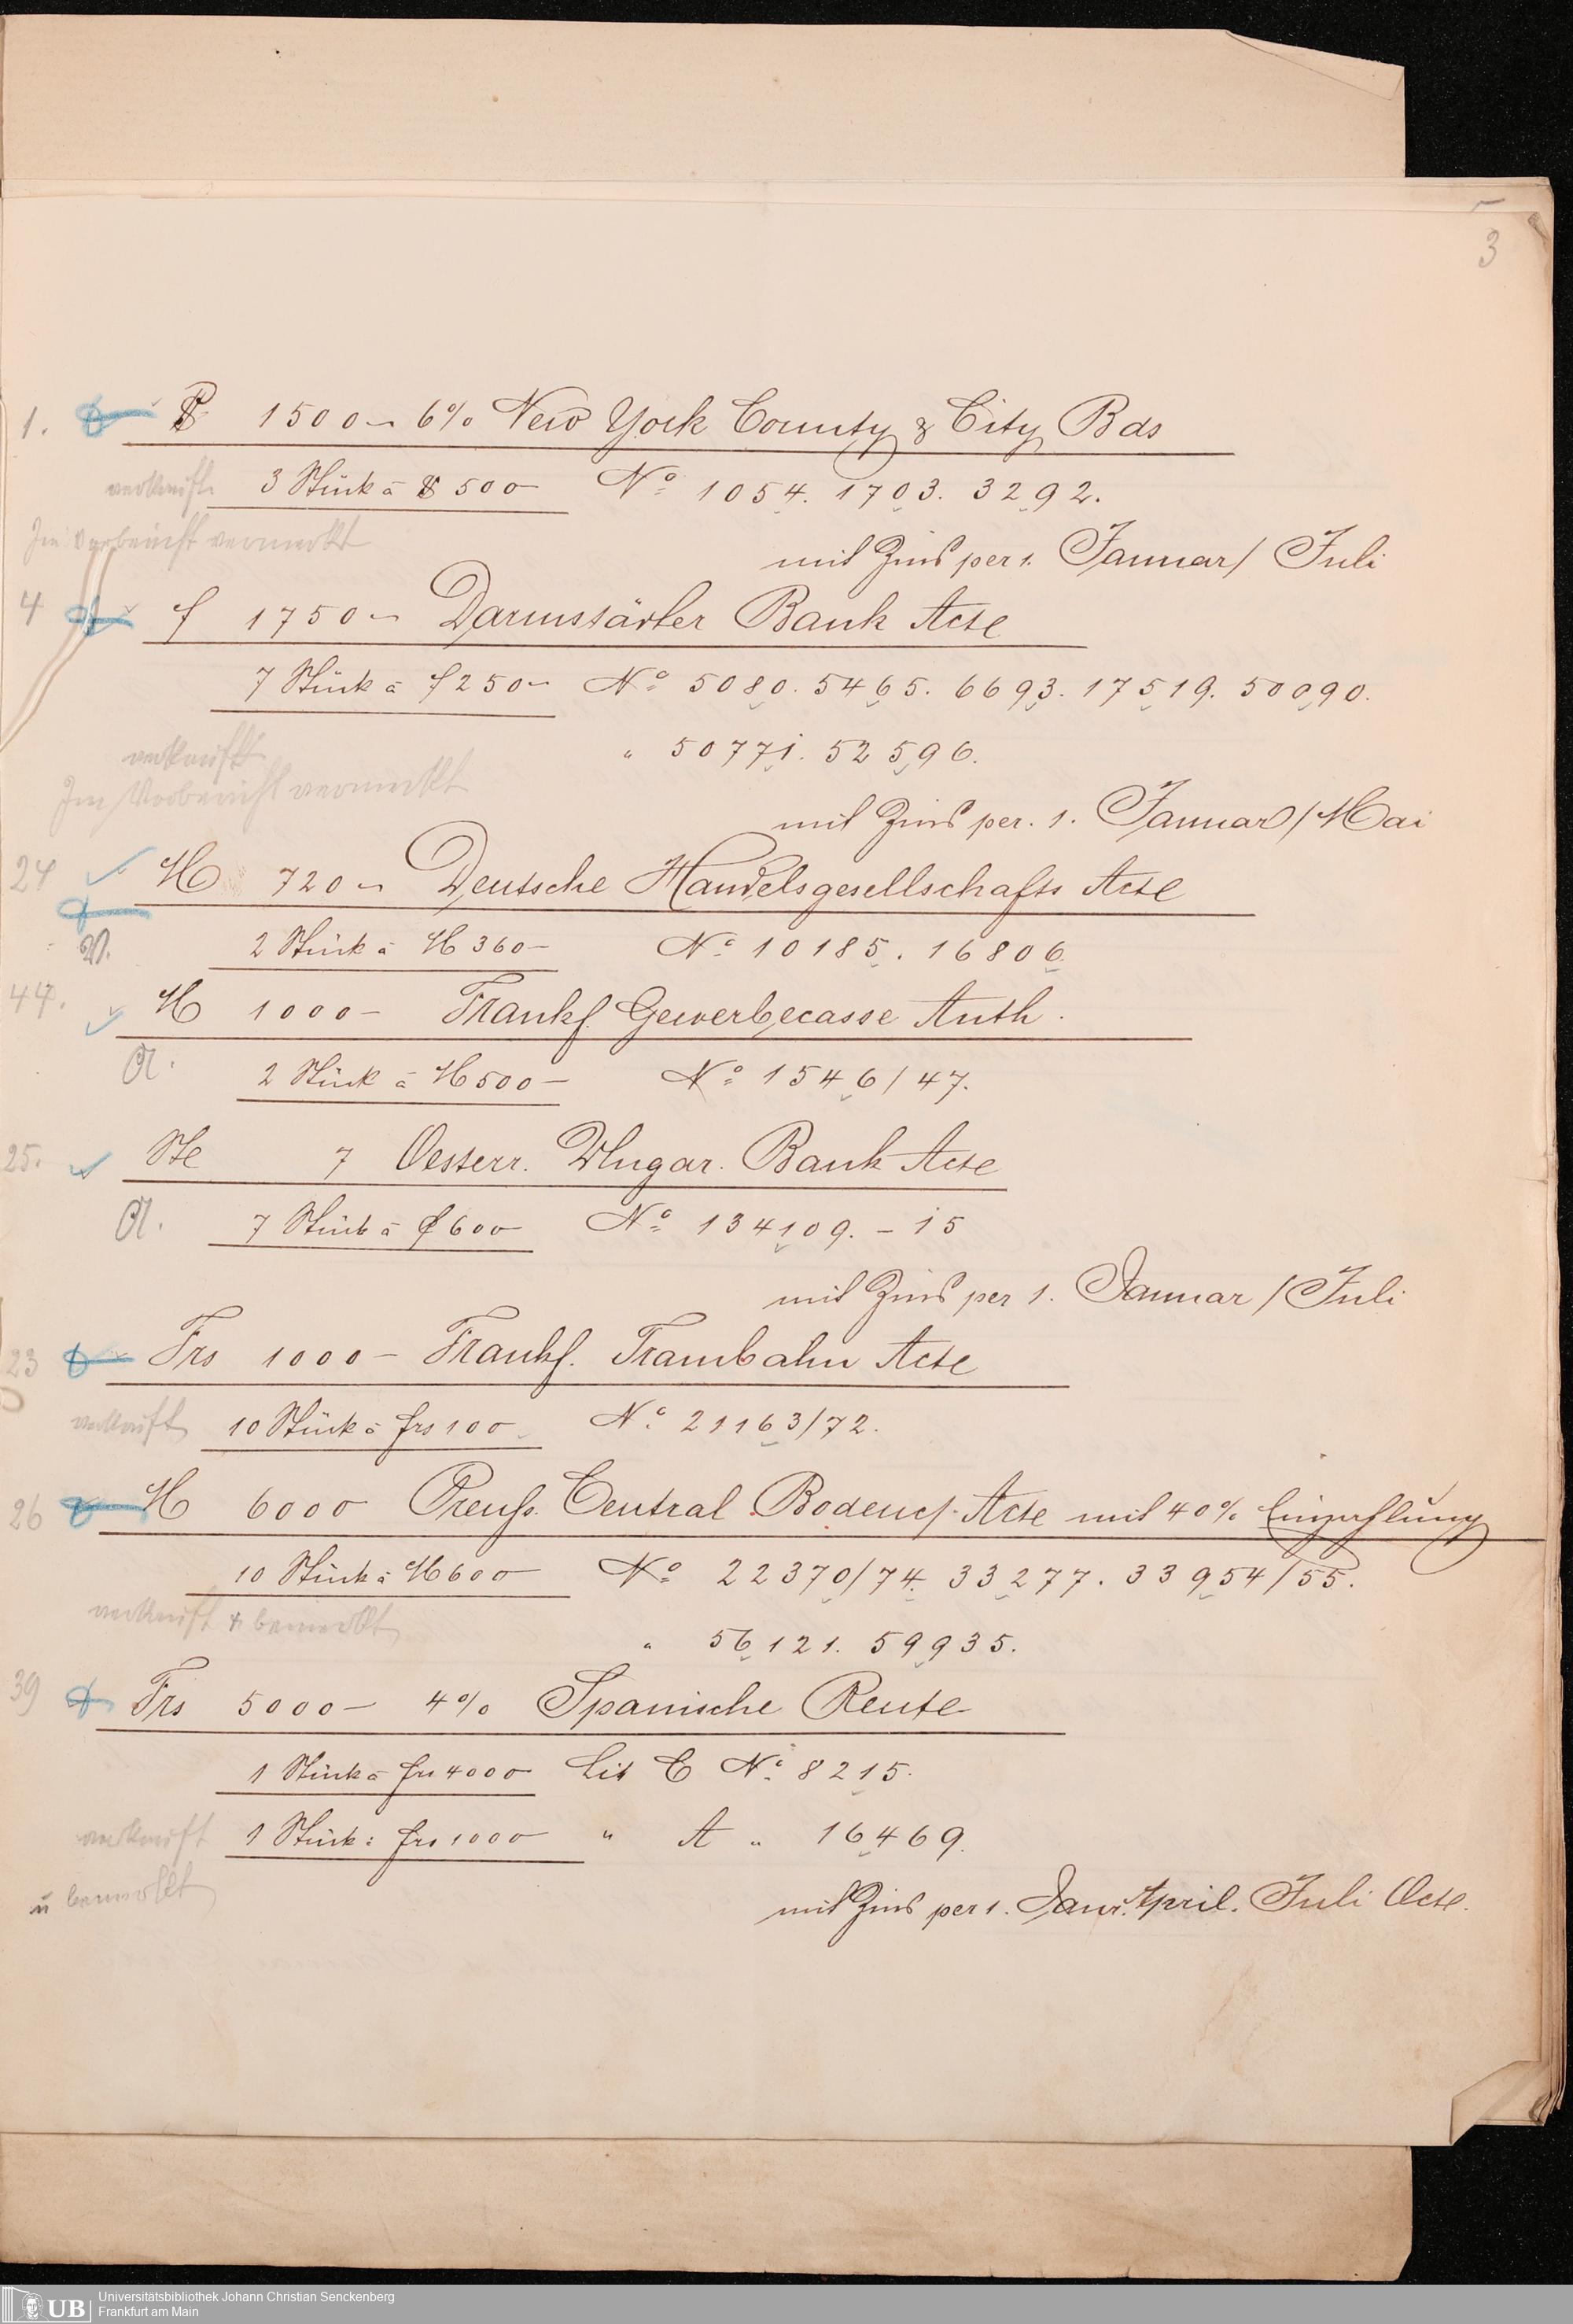 3
1. $ 1500 – 6% New York County & City Bds
verkauft 3 Stück à $ 500 – No 1054. 1703. 3292.
Im Vorbericht vermerkt
mit Zins per 1. Januar / Juli
4 f 1750 – Darmstädter Bank Acte
7 Stück à f 250 – No 5080. 5465. 6693. 17519. 50090.
" 50771. 52596.
verkauft
Im Vorbericht vermerkt
mit Zins per. 1. Januar / Mai
24 M 720 – Deutsche Handelsgesellschafts Acte
2 Stück à M 360 – No 10185. 16806.
44. M 1000 – Frankf. Gewerbecasse Anth.
A. 2 Stück à M 500 – No 1546/47.
25. Ste 7 Oesterr. Ungar. Bank Acte
A. 7 Stück à f 600 – No 134109. – 15
mit Zins per 1. Januar / Juli
23 Frs 1000 – Frankf. Trambahn Acte
verkauft 10 Stück à frs 100 – No 21163/72.
26 M 6000 Preuß. Central Bodencr. Acte mit 40% Einzahlung
10 Stück à M 600 – No 22370/74. 33277. 33954/55.
verkauft & bemerkt
" 56121. 59935.
39 Frs 5000 – 4% Spanische Rente
1 Stück à frs 4000 Lit C No 8215.
verkauft 1 Stück à frs 1000 " A " 16469.
u bemerkt
mit Zins per 1. Janr. April. Juli Octe.
UB Universitätsbibliothek Johann Christian Senckenberg
Frankfurt am Main